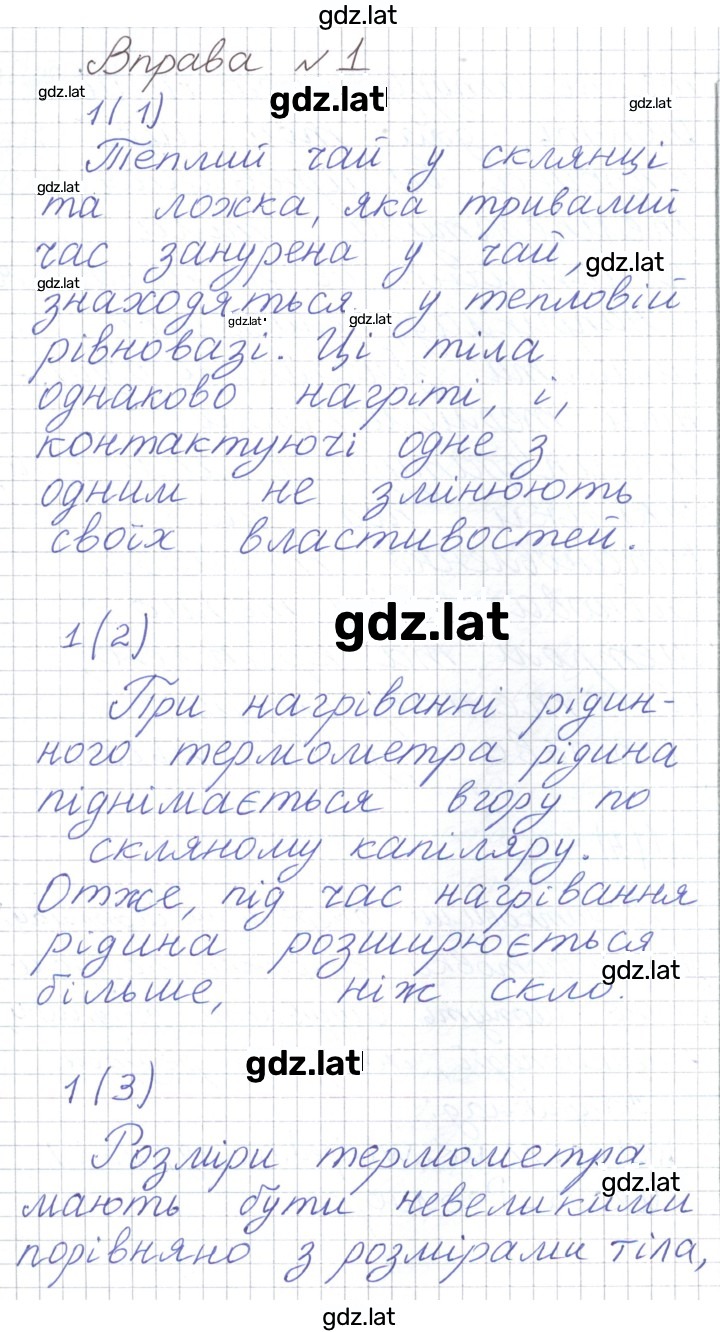 gdz.lat
Вправа №1
gdz.lat
1(1)
gdz.lat
gdz.lat
Теплий чай у склянці
gdz.lat
та ложка, яка тривалий
час занурена у чай,
gdz.lat
gdz.lat
знаходяться у тепловій
gdz.lat
gdz.lat
рівновазі. Ці тіла
однаково нагріті, і,
контактуючі одне з
одним не змінюють
своїх властивостей.
gdz.lat
1(2)
При нагріванні рідин-
ного термометра рідина
піднімається вгору по
скляному капіляру.
Отже, під час нагрівання
рідина розширюється
gdz.lat
більше, ніж скло.
gdz.lat
1(3)
Розміри термометра
gdz.lat
мають бути невеликими
порівняно з розмірами тіла,
gdz.lat